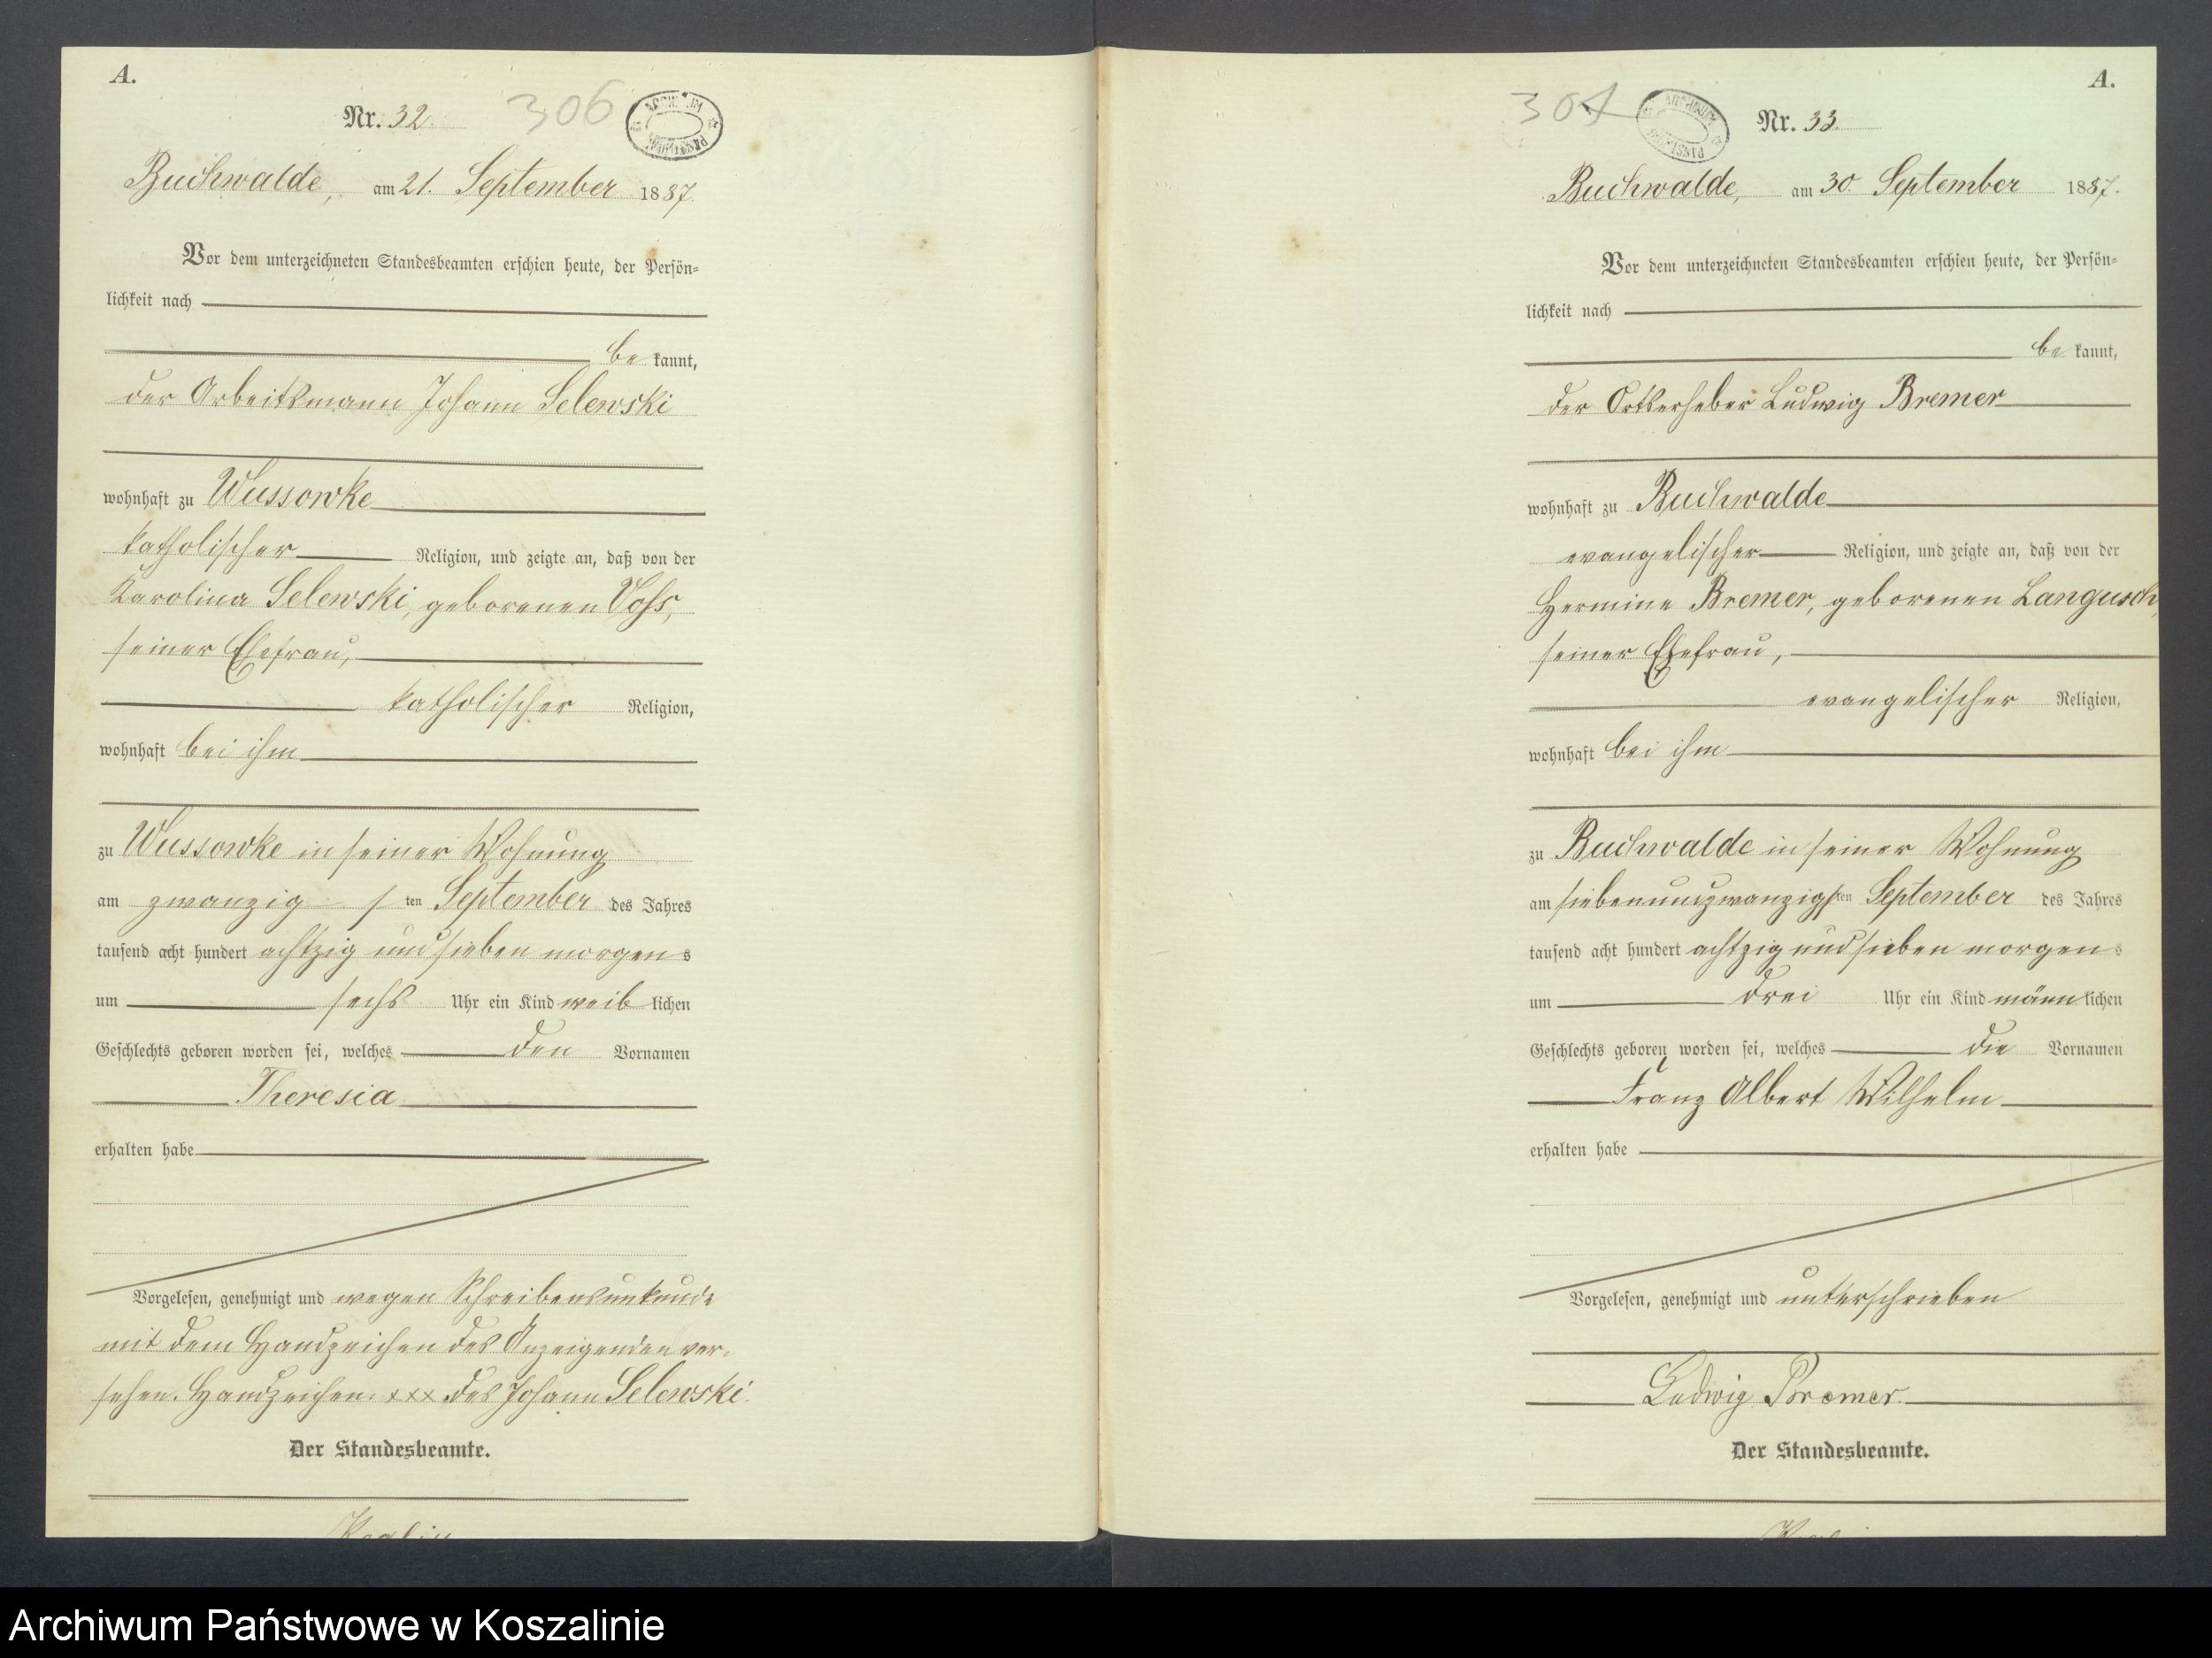 A.
Nr. 32.
306
Buchwalde, am 21. September 1887.
Vor dem unterzeichneten Standesbeamten erschien heute, der Persön-
lichkeit nach
be kannt,
der Arbeitsmann Johann Selewski
wohnhaft zu Wussowke
katholischer Religion, und zeigte an, daß von der
Karolina Selewski, geborenen Voss,
seiner Ehefrau,
katholischer Religion,
wohnhaft bei ihm
zu Wussowke in seiner Wohnung
am zwanzig s ten September des Jahres
tausend acht hundert achtzig und sieben morgens
um sechs Uhr ein Kind weib lichen
Geschlechts geboren worden sei, welches den Vornamen
Theresia
erhalten habe
Vorgelesen, genehmigt und wegen Schreibensunkunde
mit dem Handzeichen des Anzeigenden ver-
sehen. Handzeichen: xxx des Johann Selewski.
Der Standesbeamte.
A.
304
Nr. 33.
Buchwalde, am 30. September 1887.
Vor dem unterzeichneten Standesbeamten erschien heute, der Persön-
lichkeit nach
be kannt,
der Ortserheber Ludwig Bremer
wohnhaft zu Buchwalde
evangelischer Religion, und zeigte an, daß von der
Hermine Bremer, geborenen Langusch,
seiner Ehefrau,
evangelischer Religion,
wohnhaft bei ihm
zu Buchwalde in seiner Wohnung
am siebenundzwanzigsten September des Jahres
tausend acht hundert achtzig und sieben morgens
um drei Uhr ein Kind männlichen
Geschlechts geboren worden sei, welches die Vornamen
Franz Albert Wilhelm
erhalten habe
Vorgelesen, genehmigt und unterschrieben
Ludwig Bremer.
Der Standesbeamte.
Archiwum Państwowe w Koszalinie